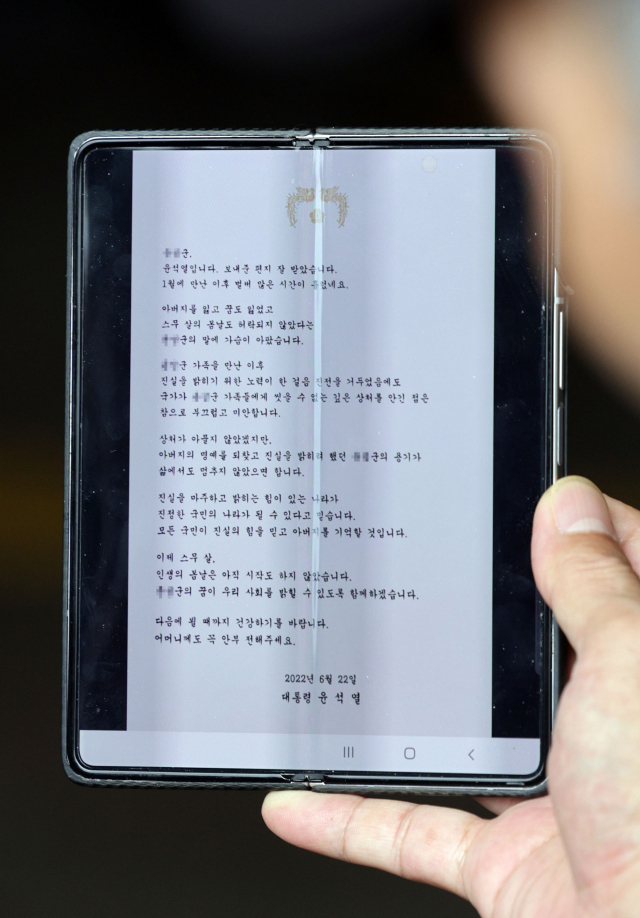 군.
윤석열입니다. 보내준 편지 잘 받았습니다.
1월에 만난 이후 벌써 많은 시간이
아버지를 잃고 꿈도 잃었고
스무 살의 봄날도 허락되지 않았다는
군의 말에 가슴이 아팠습니다.
군 가족을 만난 이후
진실을 밝히기 위한 노력이 한 걸음 진전을 거두었음에도
국가가 군 가족들에게 씻을 수 없는 깊은 상처를 안긴 점은
참으로 부끄럽고 미안합니다.
상처가 아물지 않았겠지만,
아버지의 명예를 되찾고 진실을 밝히려 했던 군의 용기가
삶에서도 멈추지 않았으면 합니다.
진실을 마주하고 밝히는 힘이 있는 나라가
진정한 국민의 나라가 될 수 있다고 믿습니다.
모든 국민이 진실의 힘을 믿고 아버지를 기억할 것입니다.
이제 스무 살,
인생의 봄날은 아직 시작도 하지 않았습니다.
군의 꿈이 우리 사회를 밝힐 수 있도록 함께하겠습니다.
다음에 뵐 때까지 건강하기를 바랍니다.
어머니께도 꼭 안부 전해주세요.
2022년 6월 22일
대통령 윤 석 열